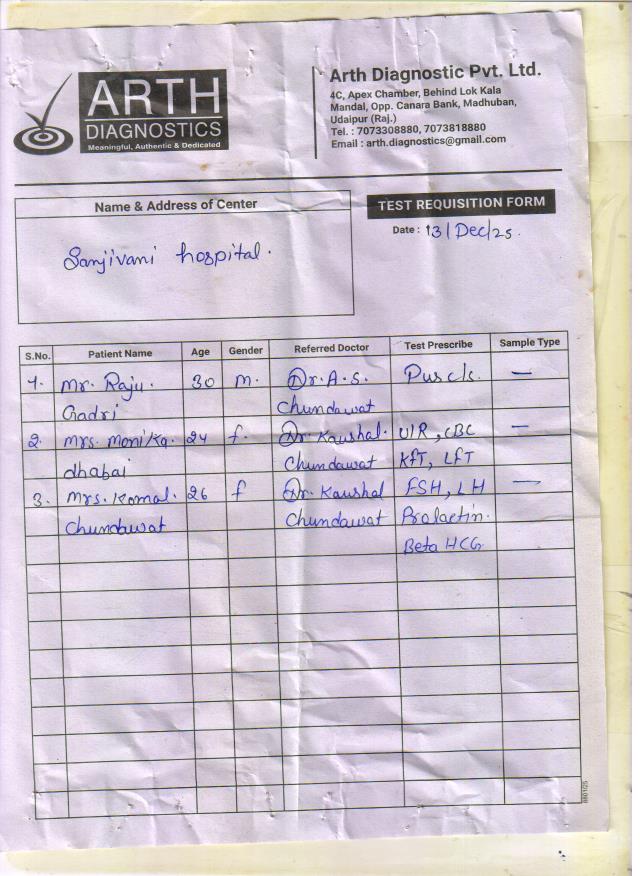 ARTH
DIAGNOSTICS
Meaningful, Authentic & Dedicated
Arth Diagnostic Pvt. Ltd.
4C, Apex Chamber, Behind Lok Kala
Mandal, Opp. Canara Bank, Madhuban,
Udaipur (Raj.)
Tel. : 7073308880, 7073818880
Email : arth.diagnostics@gmail.com
Name & Address of Center
Sanjivani hospital.
TEST REQUISITION FORM
Date : 13/Dec/25.
S.No. Patient Name Age Gender Referred Doctor Test Prescribe Sample Type
1. Mr. Raju. 30 m. Dr. A. S. Pus c/s. —
Gadri Chundawat
2. Mrs. Monika. 24 f. Dr Kaushal. U/R, CBC —
dhabai Chundawat KfT, LfT
3. Mrs. Komal. 26 f Dr. Kaushal FSH, LH —
Chundawat Chundawat Prolactin.
Beta HCG.